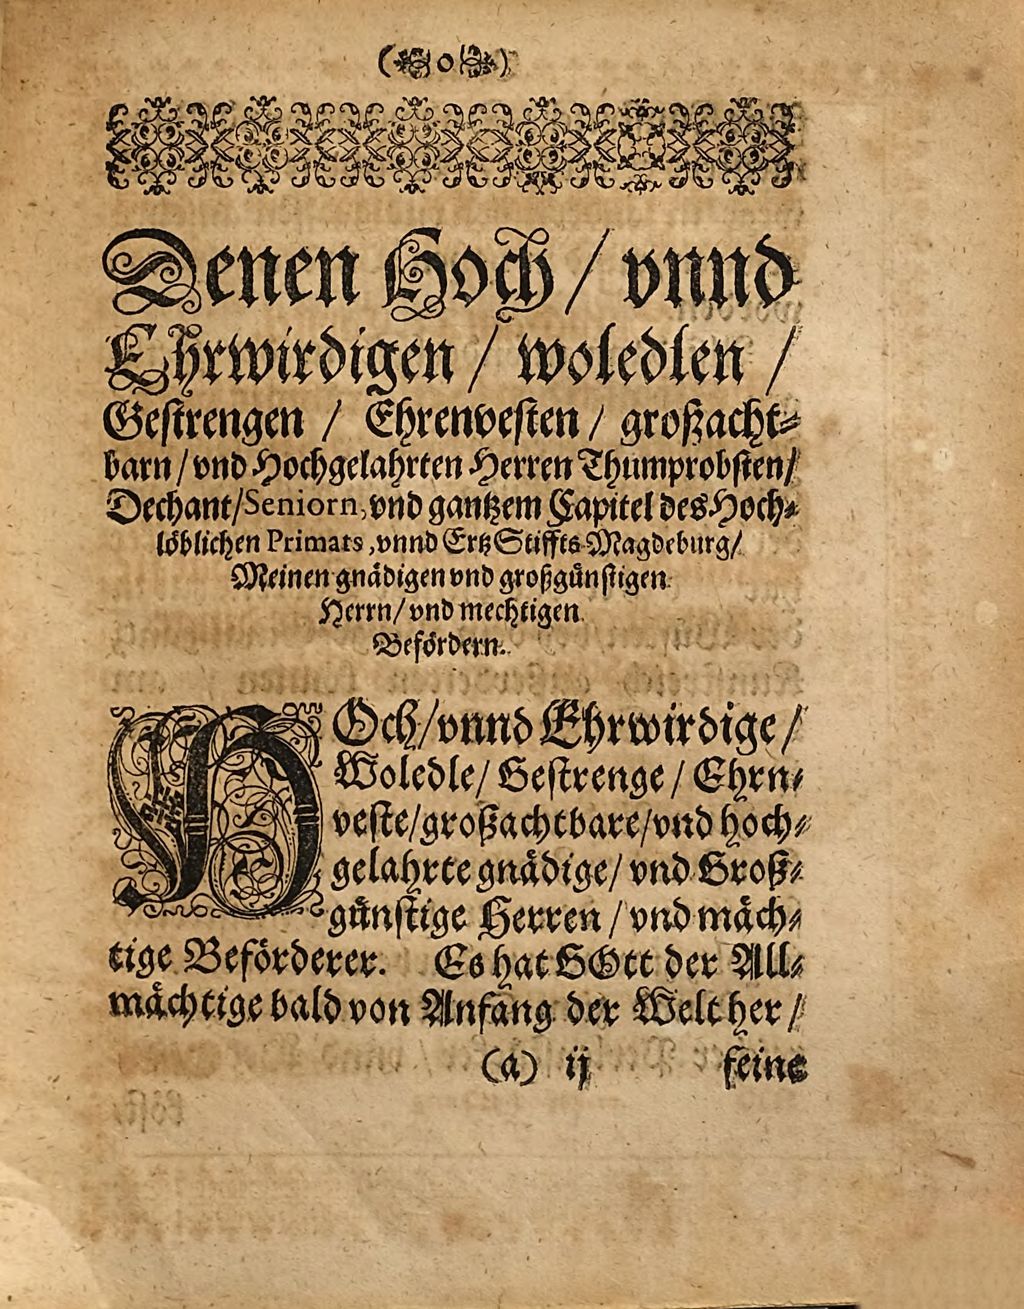 ( o )
Denen Hoch / vnnd
Ehrwirdigen / woledlen /
Gestrengen / Ehrenvesten / großacht⸗
barn / vnd Hochgelahrten Herren Thumprobsten /
Dechant / Seniorn, vnd gantzem Capitel des Hoch⸗
löblichen Primats, vnnd Ertz Stiffts Magdeburg /
Meinen gnädigen vnd großgünstigen
Herrn / vnd mechtigen
Befördern.
HOch / vnnd Ehrwirdige /
Woledle / Gestrenge / Ehrn⸗
veste / großachtbare / vnd hoch⸗
gelahrte gnädige / vnd Groß⸗
günstige Herren / vnd mäch⸗
tige Beförderer. Es hat GOtt der All⸗
mächtige bald von Anfang der Welt her /
(a) ij seine